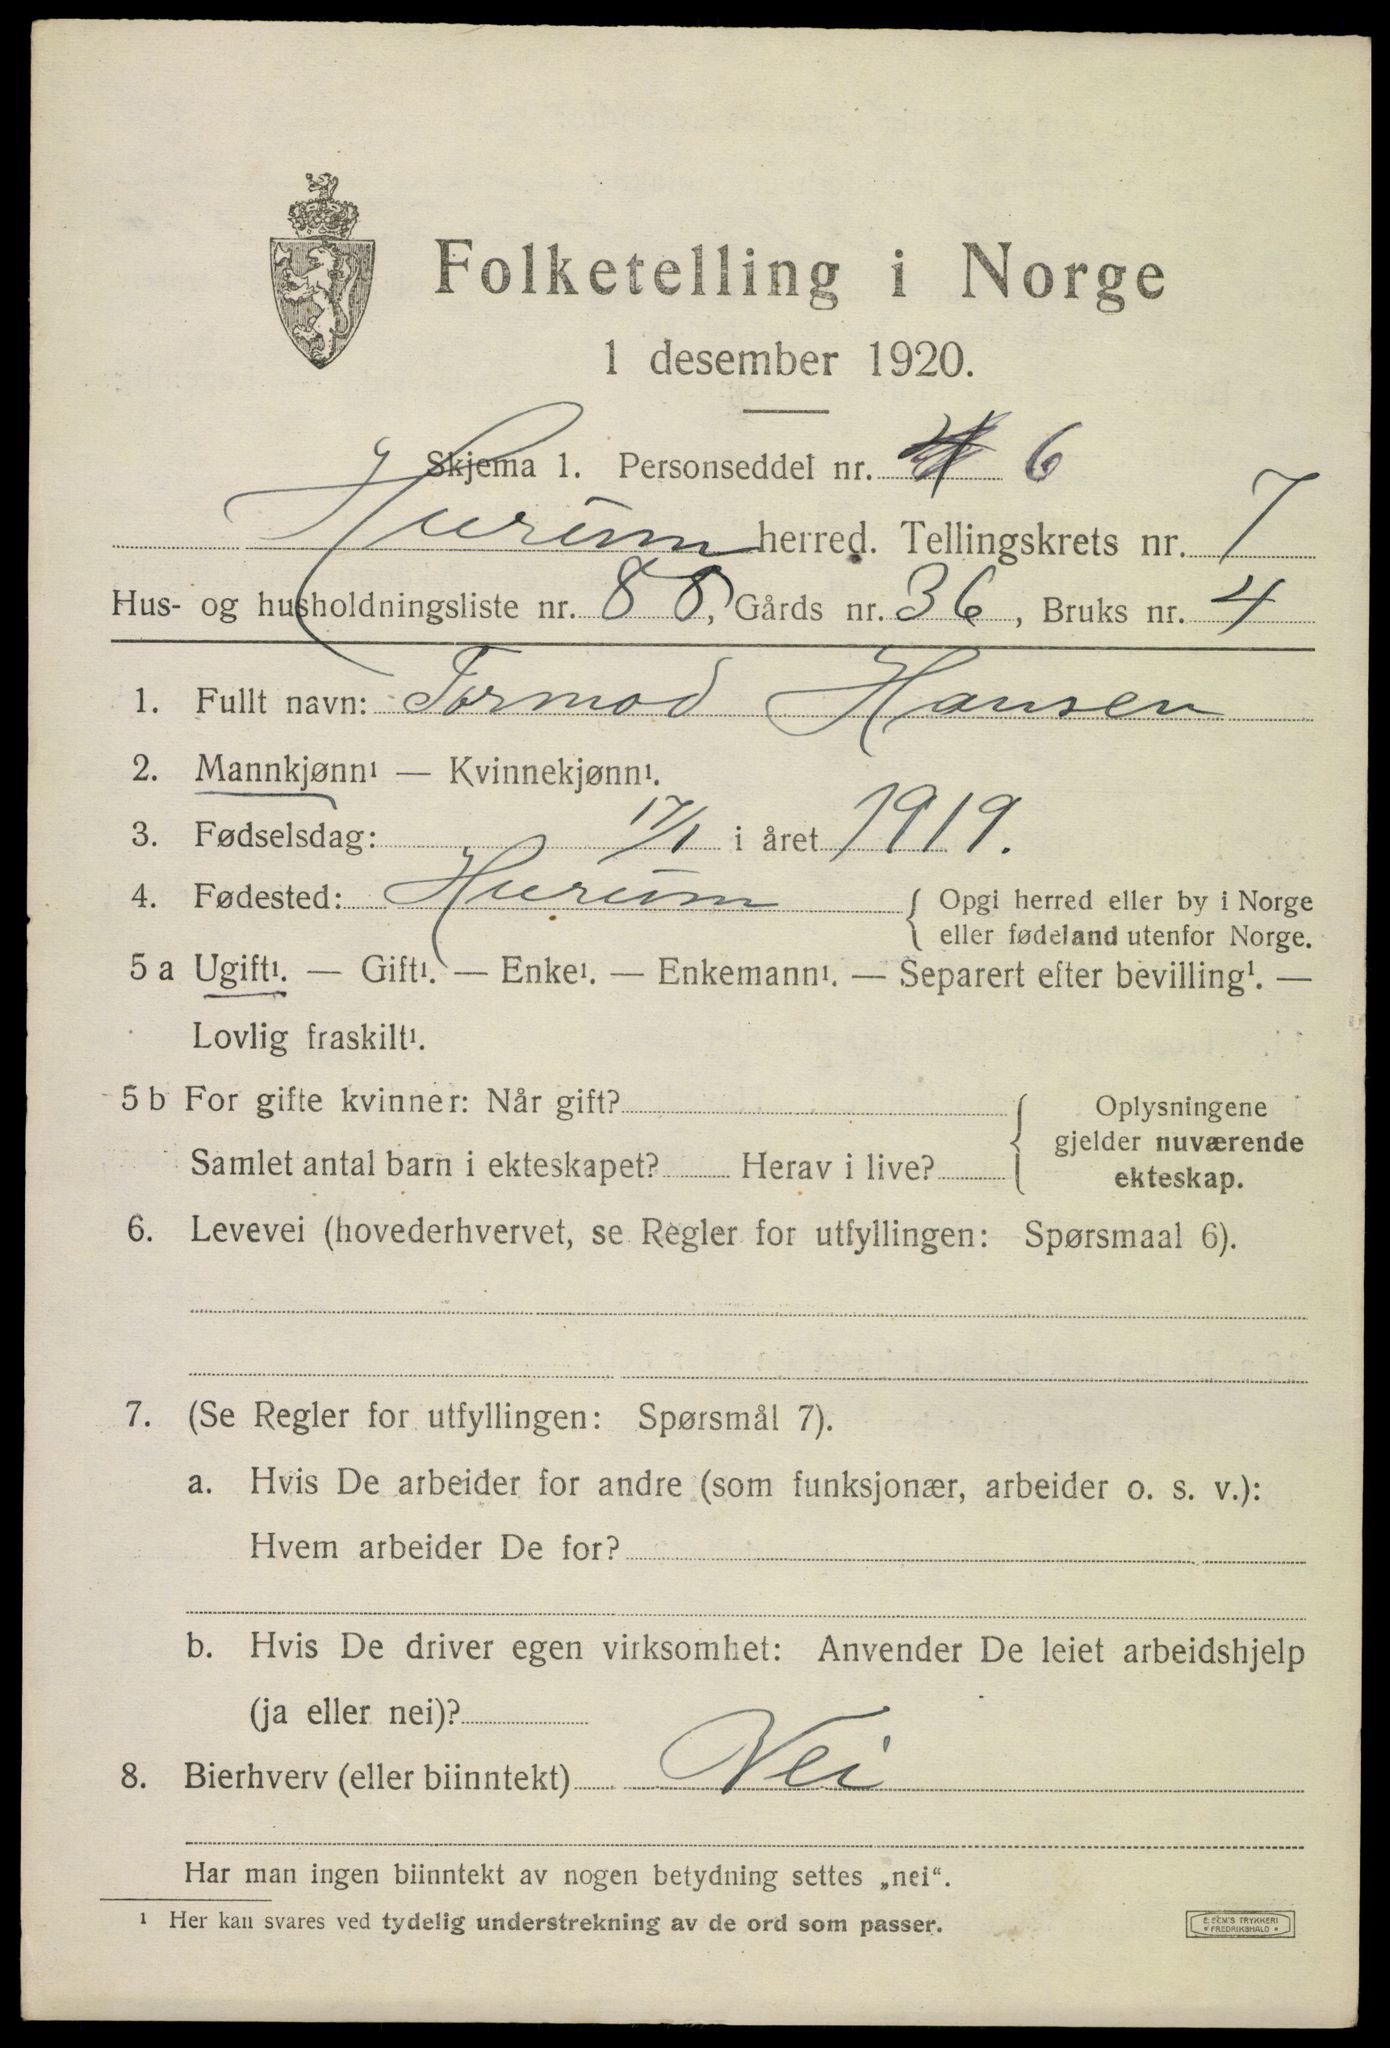 Folketelling i Norge
1 desember 1920.
Skjema 1. Personseddel nr. 6
Hurum herred. Tellingskrets nr. 7
Hus- og husholdningsliste nr. 88, Gårds nr. 36, Bruks nr. 4
1. Fullt navn: Tormod Hansen
2. Mannkjønn¹ — Kvinnekjønn¹.
3. Fødselsdag: 17/1 i året 1919.
4. Fødested: Hurum { Opgi herred eller by i Norge
eller fødeland utenfor Norge.
5 a Ugift¹. — Gift¹. — Enke¹. — Enkemann¹. — Separert efter bevilling¹. —
Lovlig fraskilt¹.
5 b For gifte kvinner: Når gift?
Samlet antal barn i ekteskapet? Herav i live?
{ Oplysningene
gjelder nuværende
ekteskap.
6. Levevei (hovederhvervet, se Regler for utfyllingen: Spørsmaal 6).
7. (Se Regler for utfyllingen: Spørsmål 7).
a. Hvis De arbeider for andre (som funksjonær, arbeider o. s. v.):
Hvem arbeider De for?
b. Hvis De driver egen virksomhet: Anvender De leiet arbeidshjelp
(ja eller nei)?
8. Bierhverv (eller biinntekt) Nei
Har man ingen biinntekt av nogen betydning settes „nei“.
¹ Her kan svares ved tydelig understrekning av de ord som passer.
E. SEM'S TRYKKERI
* FREDRIKSHALD *